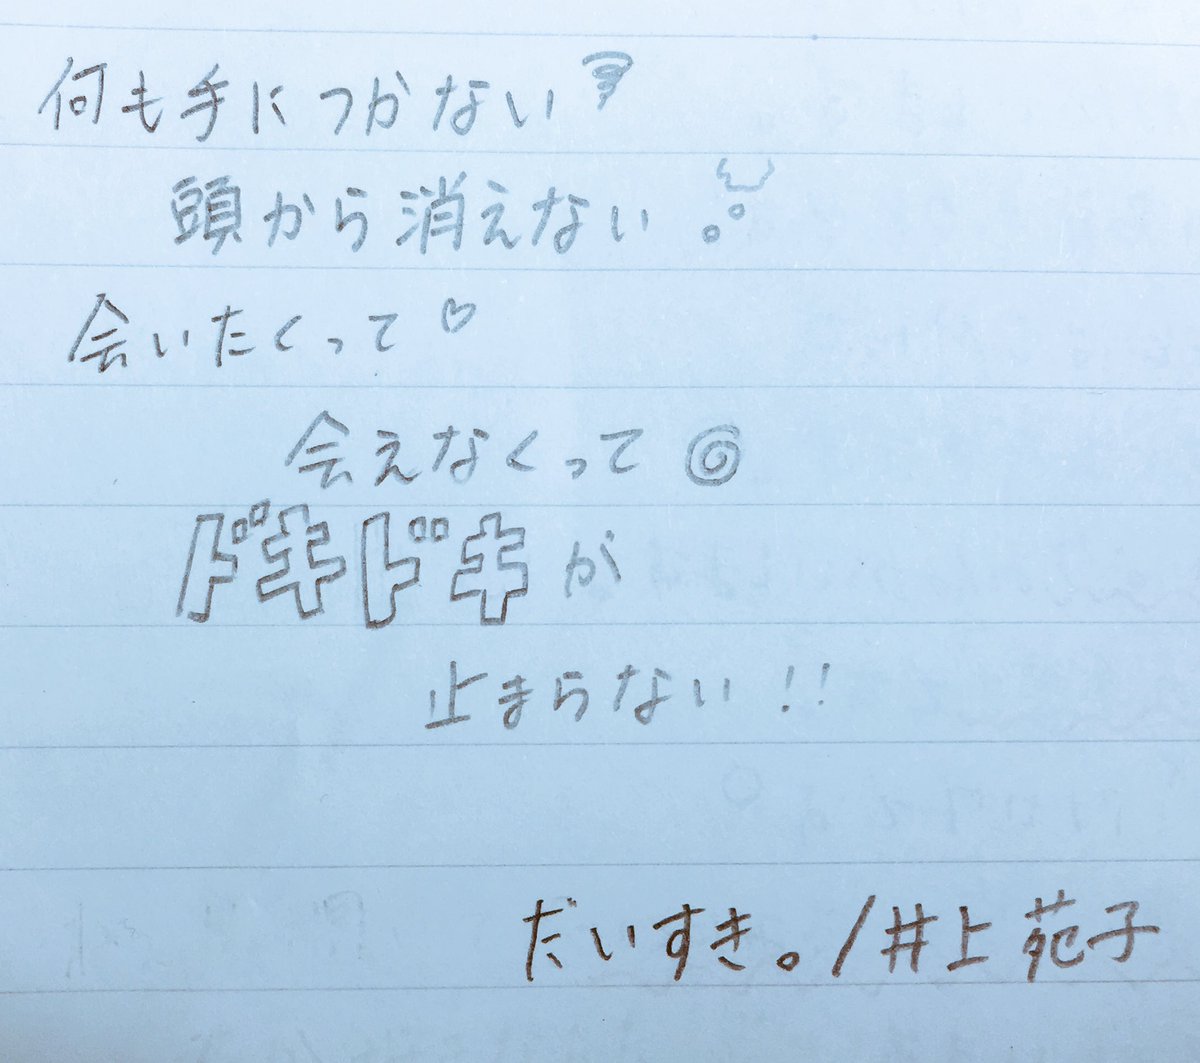 何も手につかない
頭から消えない
会いたくって♡
会えなくって
ドキドキが
止まらない!!
だいすき。/井上苑子